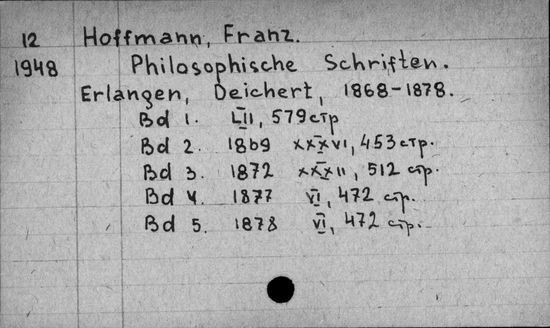 12 Hoffmann, Franz.
1948 Philosophische Schriften.
Erlangen, Deichert, 1868-1878.
Bd 1. LII, 579 стр
Bd 2. 1869 XXXVI, 453 стр.
Bd 3. 1872 XXXII, 512 стр.
Bd 4. 1877 VI, 472 стр.
Bd 5. 1878 VI, 472 стр.